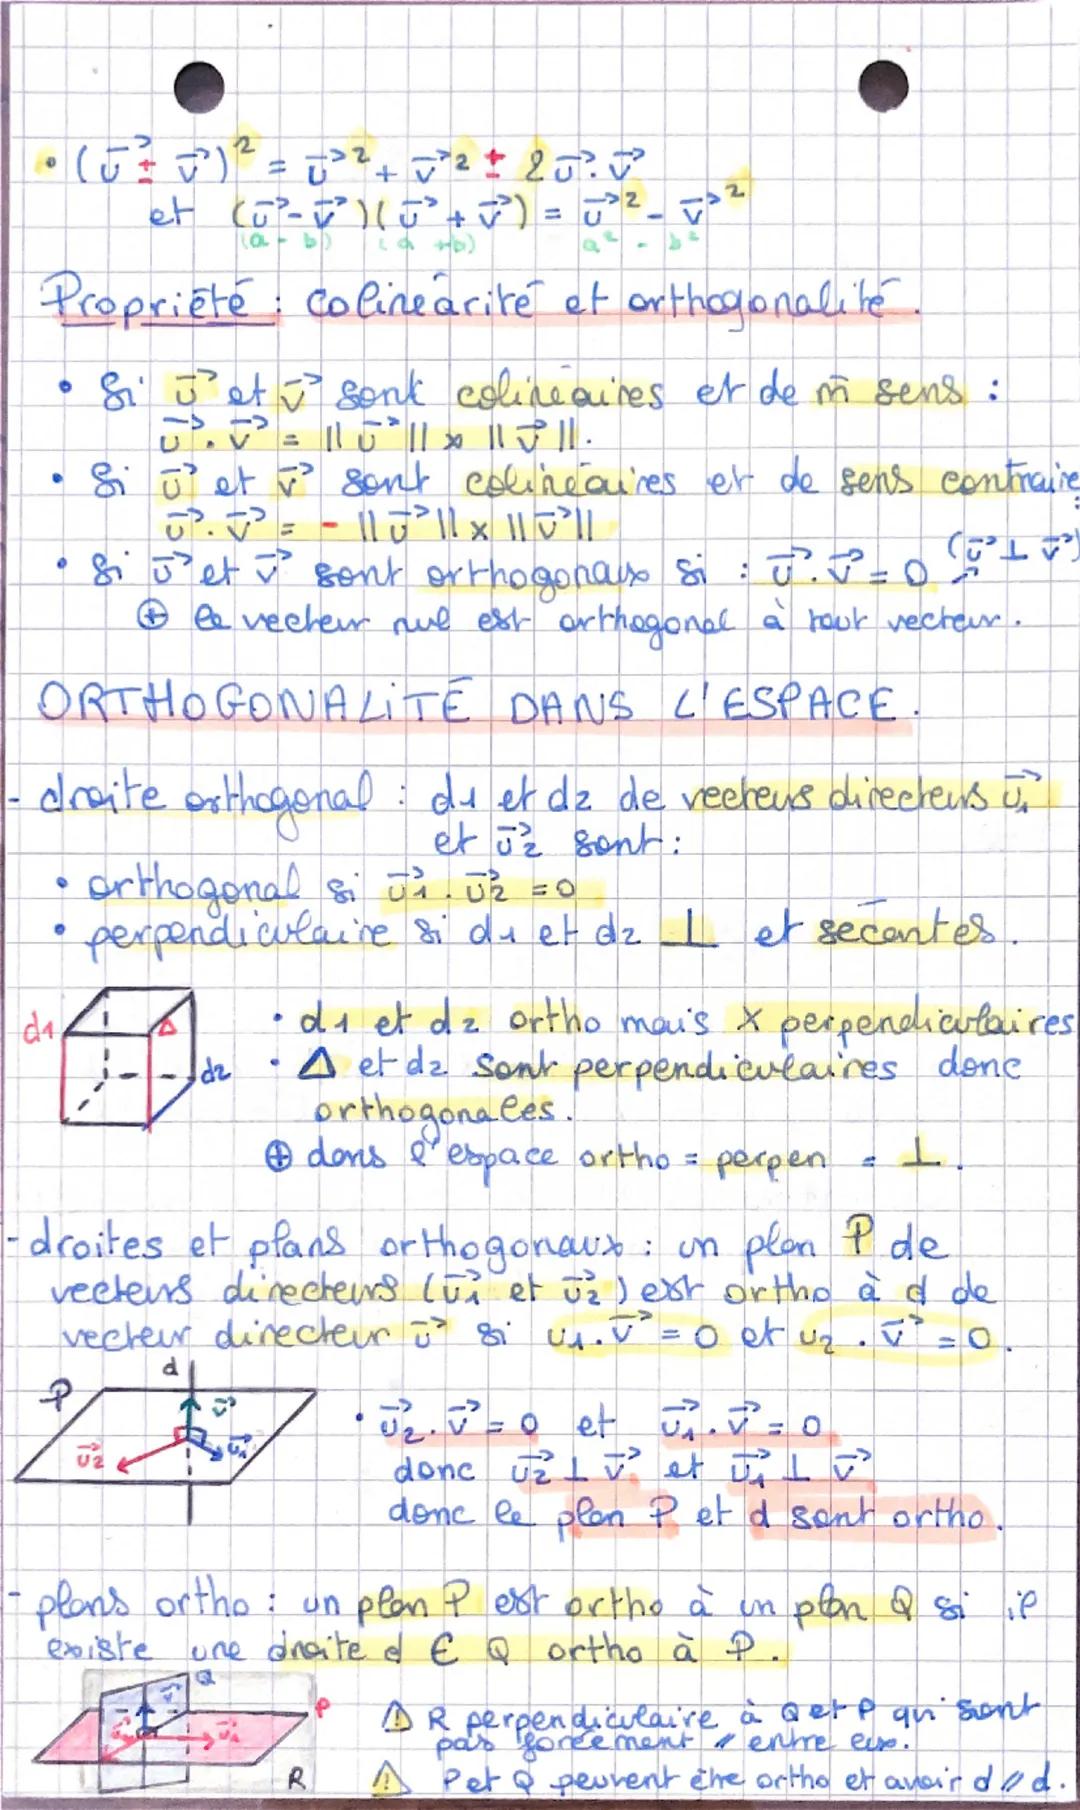 • (u⃗ ± v⃗)² = u⃗² + v⃗² ± 2u⃗.v⃗
et (u⃗ - v⃗)(u⃗ + v⃗) = u⃗² - v⃗²
(a - b) (a + b) a² - b²
Propriété : colinéarité et orthogonalité.
• Si u⃗ et v⃗ sont colinéaires et de m̄ sens :
u⃗ . v⃗ = || u⃗ || x || v⃗ ||.
• Si u⃗ et v⃗ sont colinéaires et de sens contraire :
u⃗ . v⃗ = - || u⃗ || x || v⃗ ||
• Si u⃗ et v⃗ sont orthogonaux si : u⃗ . v⃗ = 0 (u⃗ ⊥ v⃗)
⊕ le vecteur nul est orthogonal à tout vecteur.
ORTHOGONALITÉ DANS L'ESPACE.
- droite orthogonal : d1 et d2 de vecteurs directeurs u⃗1
et u⃗2 sont :
• orthogonal si u⃗1 . u⃗2 = 0
• perpendiculaire si d1 et d2 ⊥ et sécantes.
d1 Δ d2
• d1 et d2 ortho mais X perpendiculaires
• Δ et d2 sont perpendiculaires donc
orthogonales.
⊕ dans l'espace ortho = perpen = ⊥.
- droites et plans orthogonaux : un plan P de
vecteurs directeurs (u⃗1 et u⃗2) est ortho à d de
vecteur directeur u⃗ si u1 . v⃗ = 0 et u2 . v⃗ = 0.
P d v⃗ u⃗2 u⃗1
• u⃗2 . v⃗ = 0 et u⃗1 . v⃗ = 0
donc u⃗2 ⊥ v⃗ et u⃗1 ⊥ v⃗
donc le plan P et d sont ortho.
- plans ortho : un plan P est ortho à un plan Q si il
existe une droite d ∈ Q ortho à P.
Q v⃗ P u⃗1 R
⚠ R perpendiculaire à Q et P qui sont
pas forcément // entre eux.
⚠ P et Q peuvent être ortho et avoir d // d.